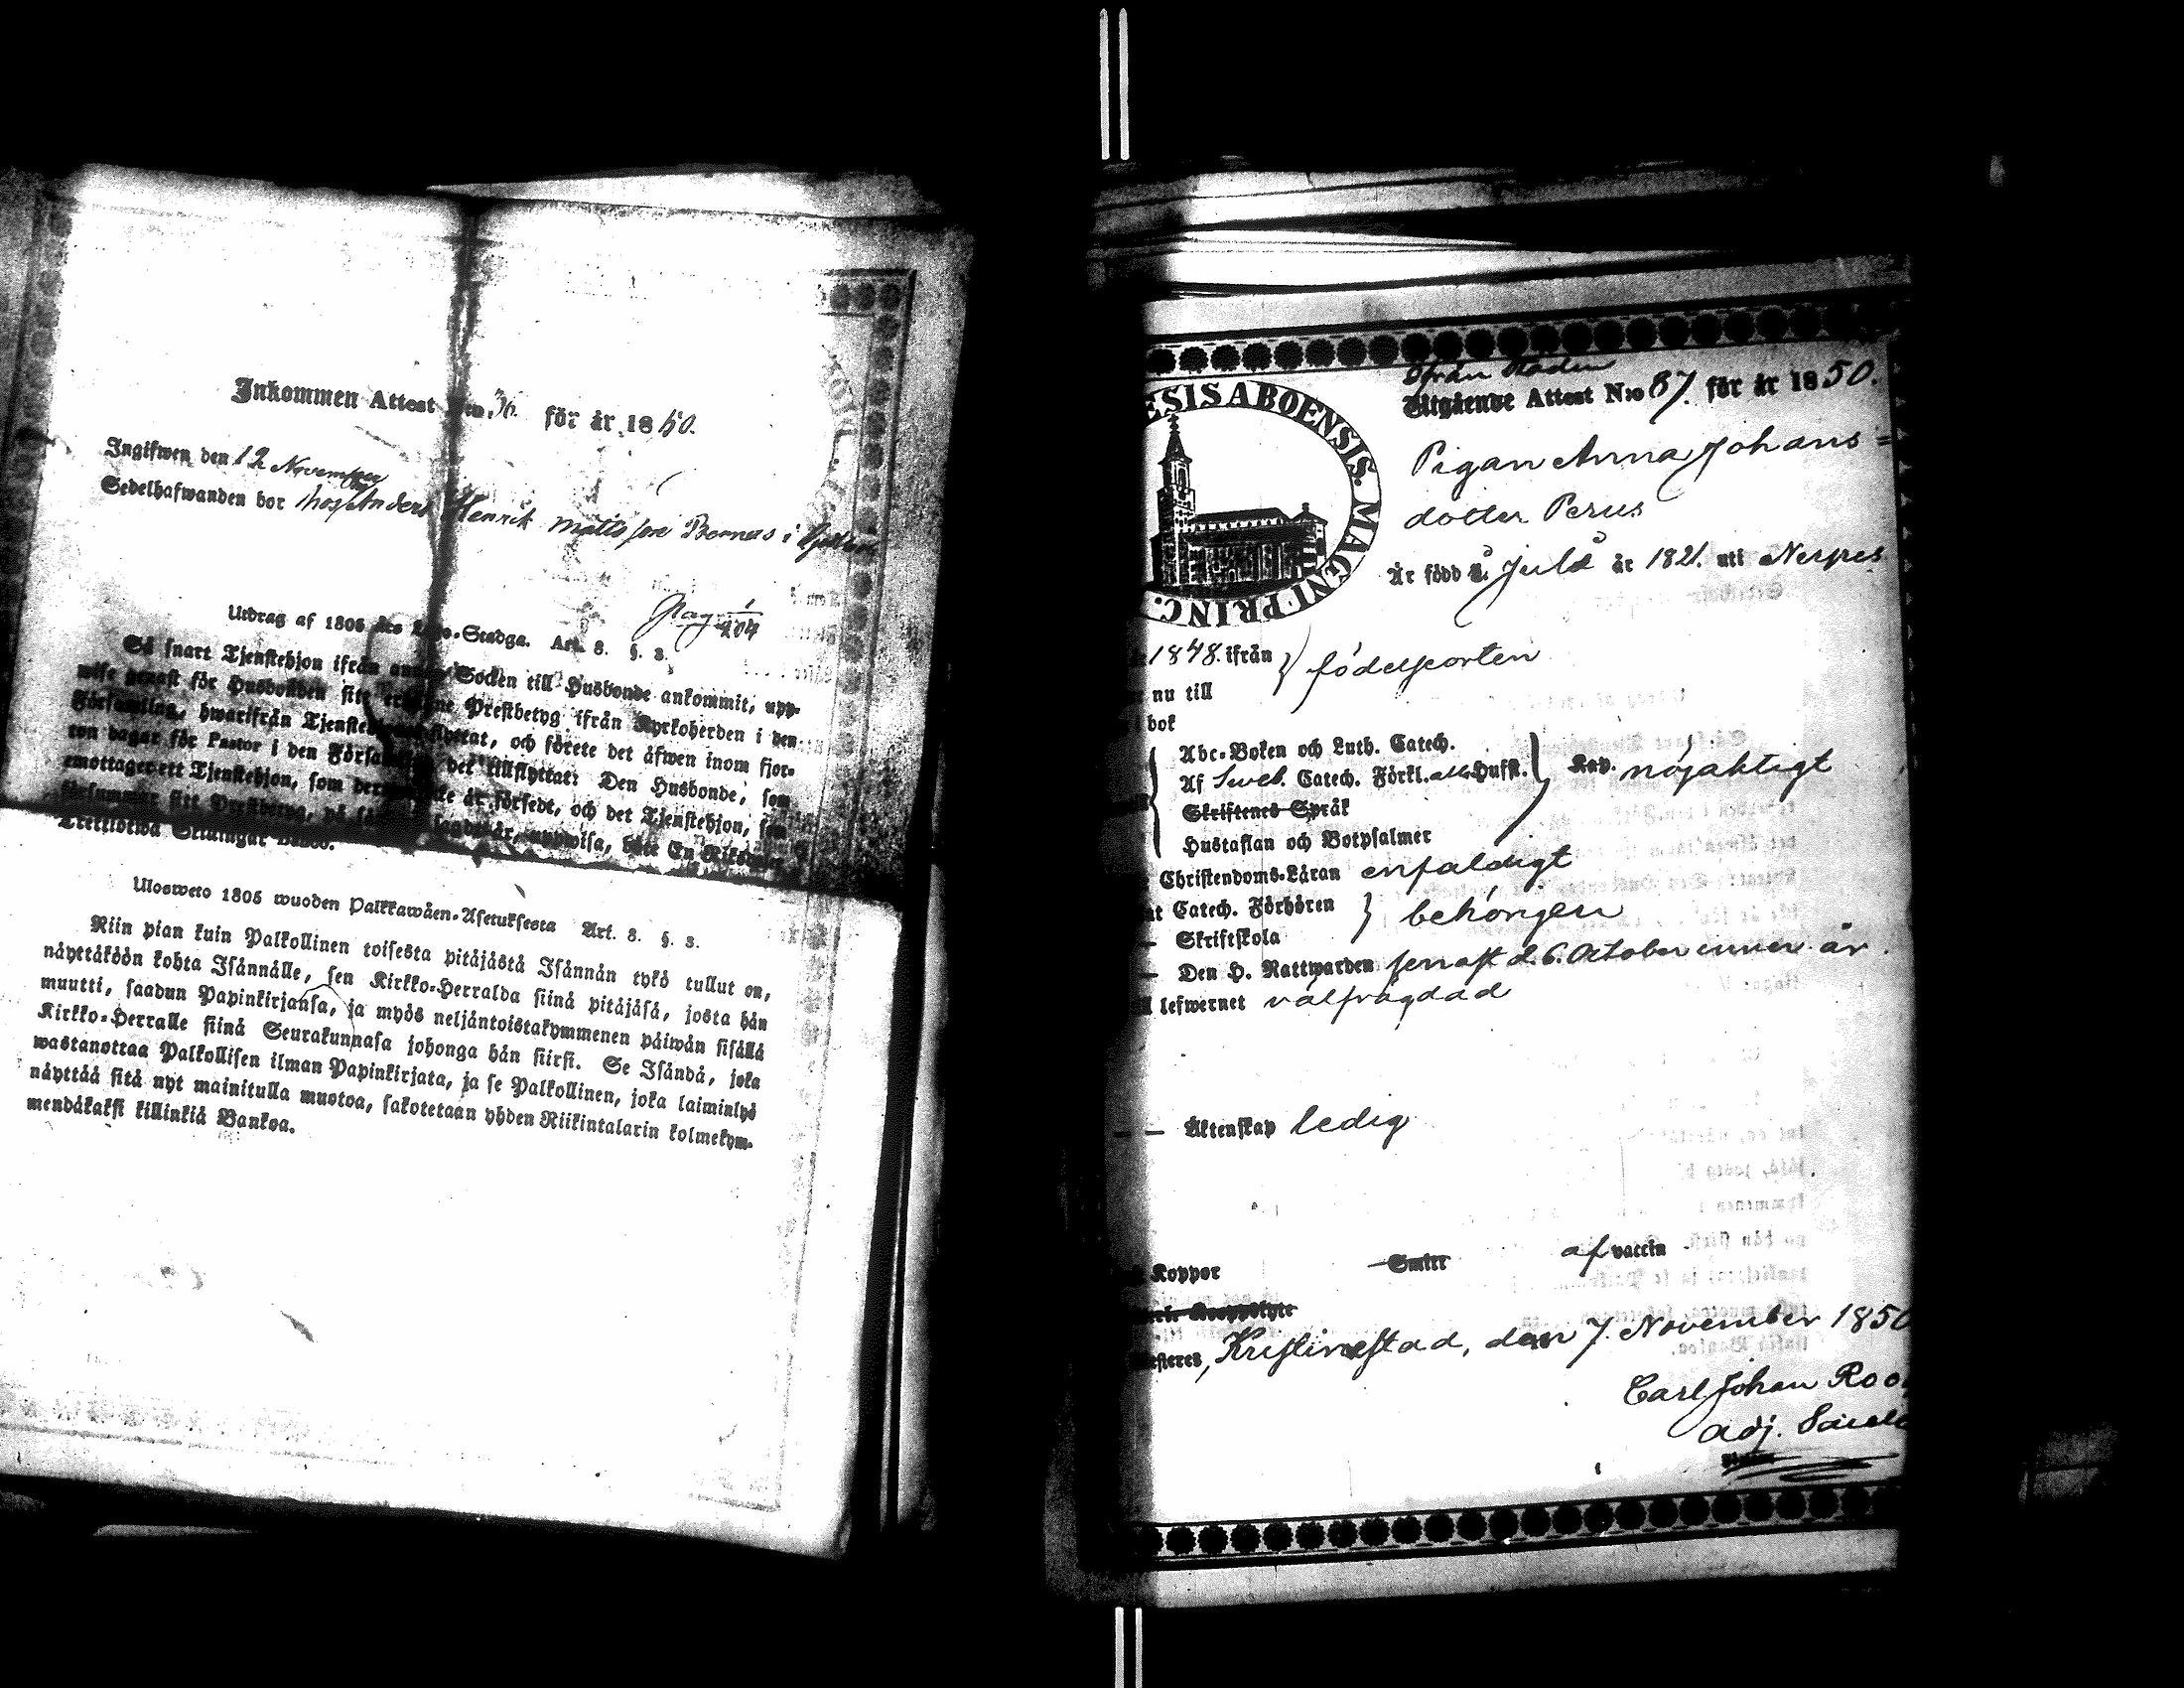 Inkommen Attest N:o 36. för år 1850.
Ingifwen den 12 November
Sedelhafwanden bor hos Anders Henrik Mattsson Bernas i
Pag 1/204
Utdrag af 1805 års Lego-Stadga. Art. 8. §. 3.
Så snart Tjenstehjon ifrån annan Socken till Husbonde ankommit, upp-
wise genast för Husbonden sitt erhållne Prestbetyg ifrån Kyrkoherden i den
Församling, hwarifrån Tjenstehjonet flyttat, och förete det äfwen inom fjor-
ton dagar för Pastor i den Församling det tillflyttat: Den Husbonde, som
emottager ett Tjenstehjon, som dermed icke är försedt, och det Tjenstehjon, som
försummar sitt Prestbetyg, på sätt sagdt är, uppwisa, böte En Riksdaler
Trettiotwå Skillingar Banco.
Ulosweto 1805 wuoden Palkkawäen-Asetuksesta Art. 8. §. 3.
Niin pian kuin Palkollinen toisesta pitäjästä Isännän tykö tullut on,
näyttäköön kohta Isännälle, sen Kirkko-Herralda siinä pitäjäsä, josta hän
muutti, saadun Papinkirjansa, ja myös neljäntoistakymmenen päiwän sisällä
Kirkko-Herralle siinä Seurakunnasa johonga hän siirsi. Se Isändä, joka
wastanottaa Palkollisen ilman Papinkirjata, ja se Palkollinen, joka laiminlyö
näyttää sitä nyt mainitulla muotoa, sakotetaan yhden Riikintalarin kolmekym-
mendäkaksi killinkiä Bankoa.
ESIS ABOENSIS. MAGNI PRINC.
Ifrån Staden
Utgående Attest N:o 87. för år 1850.
Pigan Anna Johans=
dotter Perus
Är född d. 5 Julii år 1821. uti Nerpes
1848. ifrån } födelseorten
nu till
bok
Abc-Boken och Luth. Catech.
Af Sweb. Catech. Förkl. Husst. } Kap. nöjaktigt
Skriftenes Språk
Hustaflan och Botpsalmer
Christendoms-Läran enfaldigt
Catech. Förhören } behörigen
— Skriftskola
— Den H. Nattwarden senast d. 6. October innev. år.
lefwernet välfrägdad
— — Äktenskap ledig
Koppor Smitt af vaccin
Kristinestad, den 7. November 1850
Carl Johan Roo
adj.